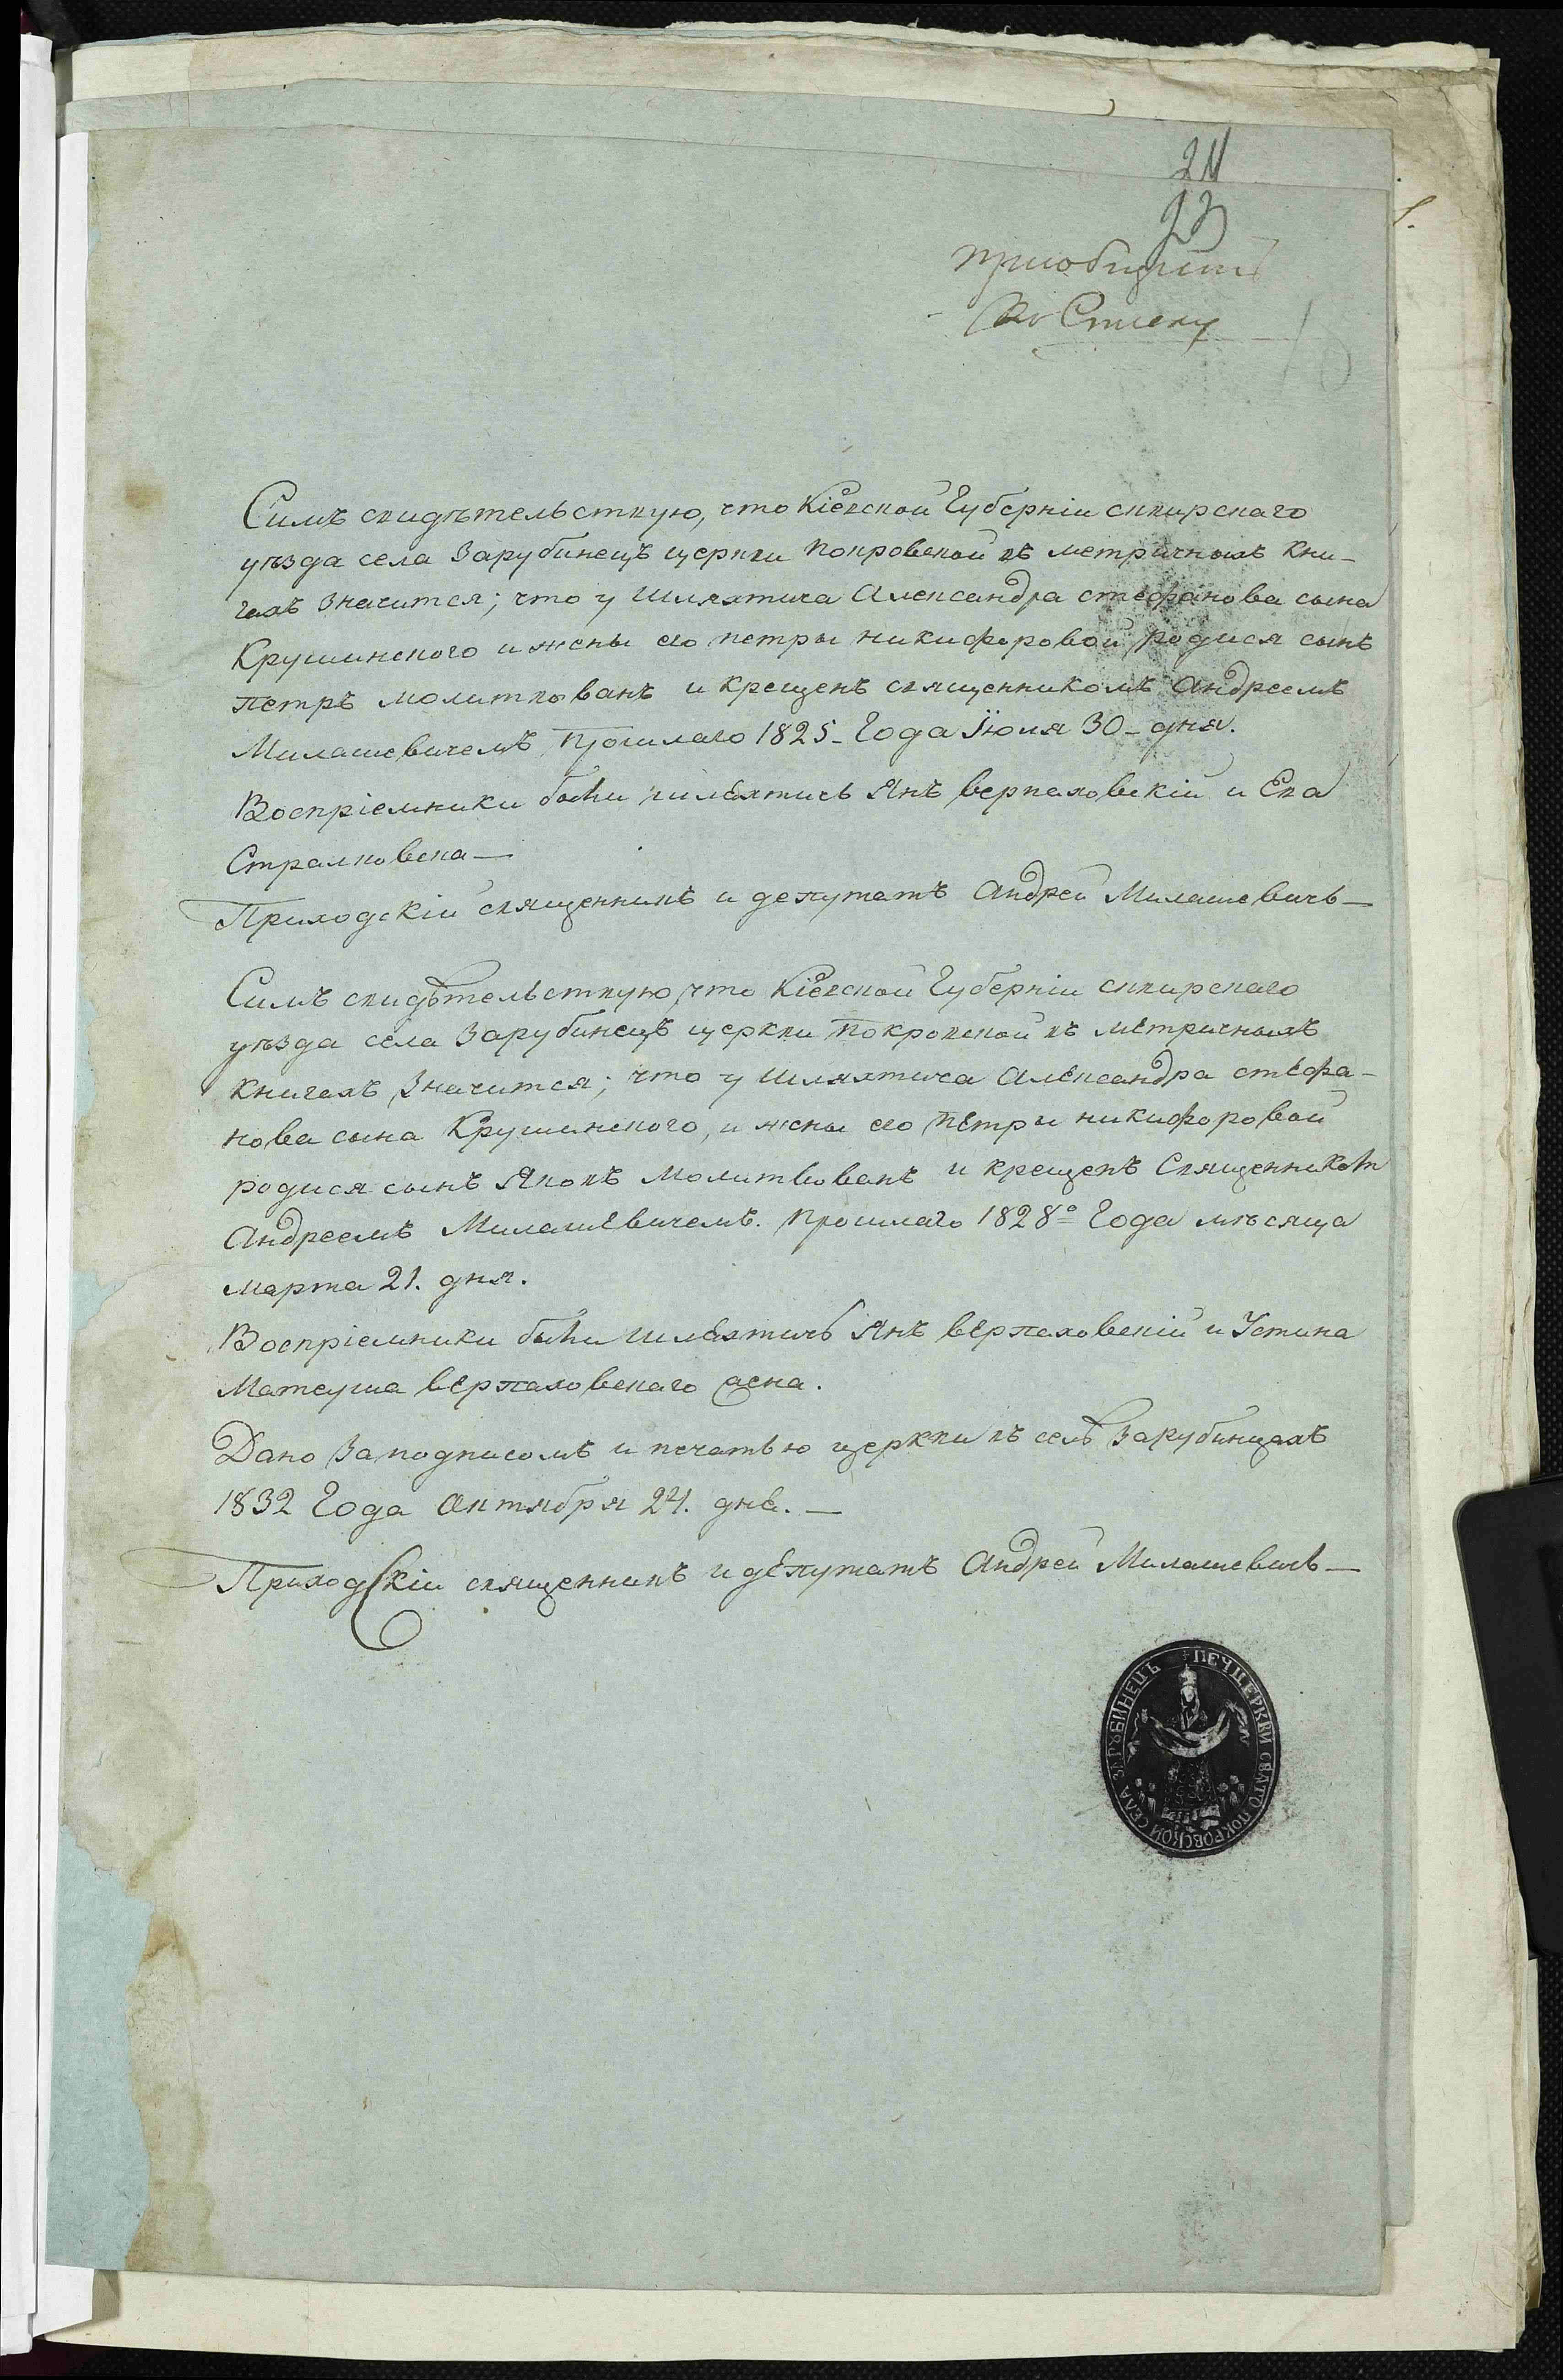 24
23
приобщить
Къ Списку
Симъ свидѣтельствую, что Кіевской Губерніи сквирскаго
уѣзда села Зарубинецъ церкви Покровской въ метричныхъ Кни-
гахъ Значится; что у Шляхтича Александра стефанова сына
Крушинского и жены его петры никифоровой родися сынъ
петръ молитвованъ и крещенъ священникомъ Андреемъ
Милашевичемъ, прошлаго 1825- Года Іюля 30- дня.
Воспріемники были шляхтичъ Янъ верпаховскій и Ева
Приходскій священникъ и депутатъ Андрей Милашевичъ—
Симъ свидѣтельствую, что Кіевской Губерніи сквирскаго
уѣзда села Зарубинецъ церкви Покровской въ метричныхъ
Книгахъ Значится; что у Шляхтича Александра стефа-
нова сына Крушинского, и жены его петры никифоровой
родися сынъ Яковъ молитвованъ и крещенъ Священником
Андреемъ Милашевичемъ. прошлаго 1828о Года мѣсяца
марта 21. дня.
Воспріемники были шляхтичъ Янъ верпаховскій и Устина
Матеуша верпаховскаго жена.
Дано За подписомъ и печатью церкви въ селѣ Зарубинцахъ
1832 Года октября 24. дня. —
Приходскій священникъ и депутатъ Андрей Милашевичъ—
ПЕЧ ЦЕРКВИ СВЯТО ПОКРОВСКОЙ СЕЛА ЗАРУБИНЕЦЪ